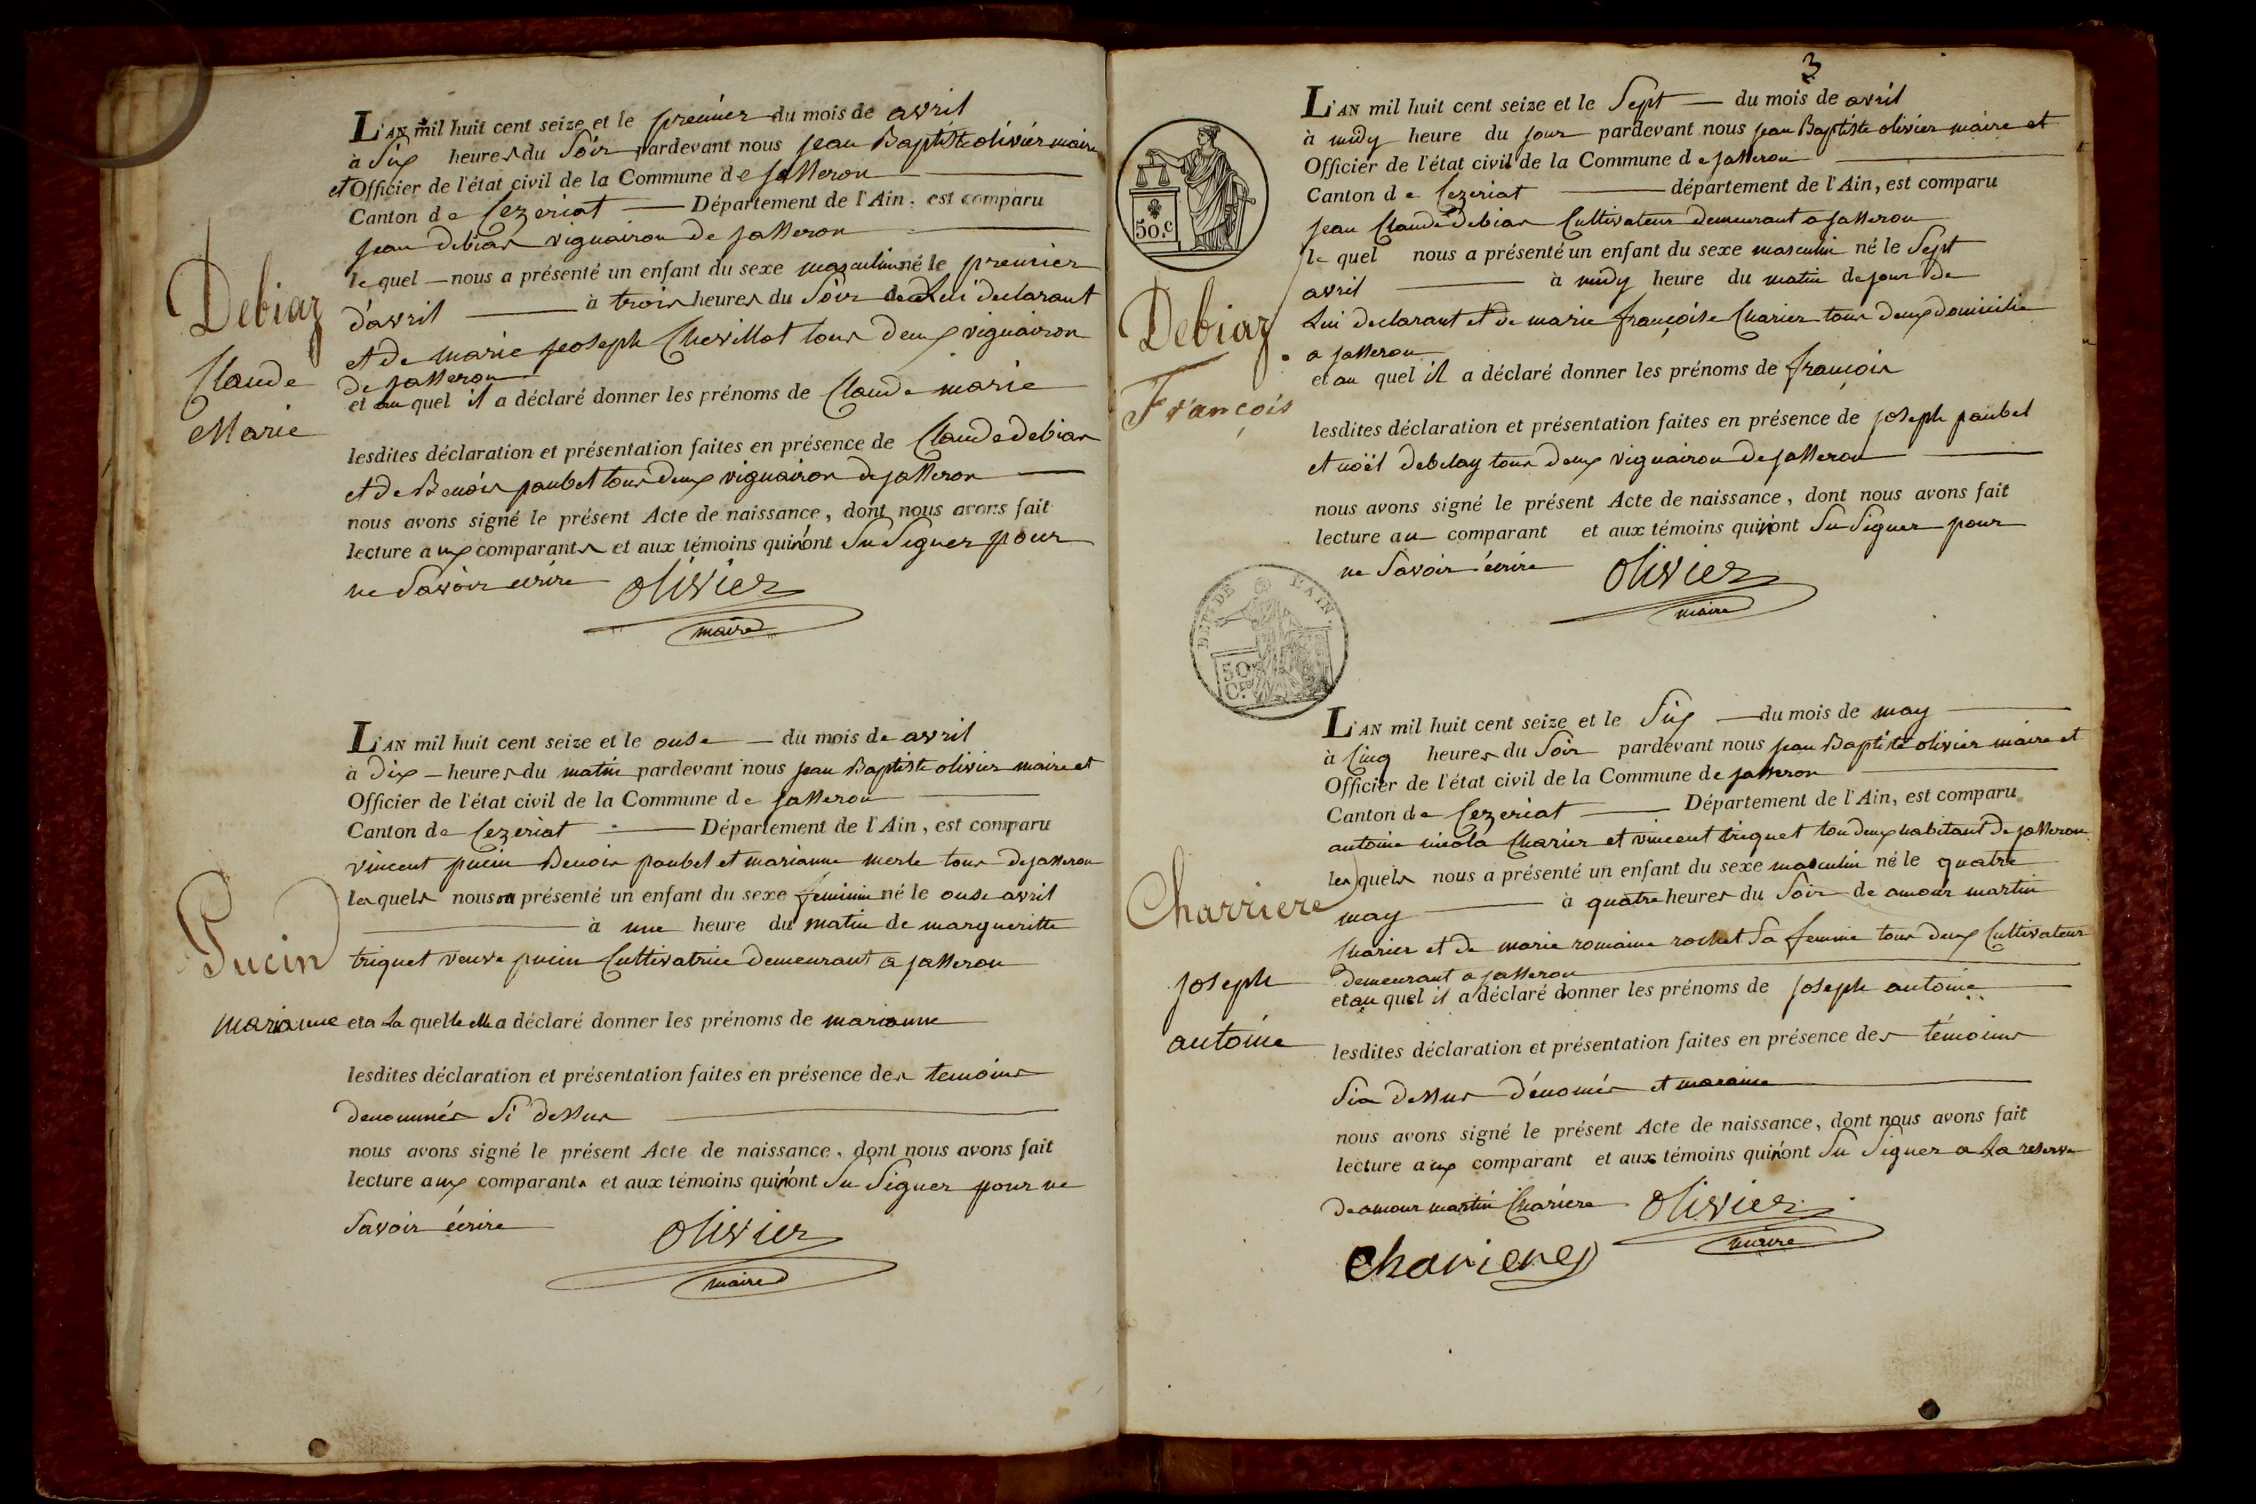 L'AN mil huit cent seize et le premier du mois de avril
à Six heures du Soir pardevant nous jean Baptiste olivier maire
et Officier de l'état civil de la Commune de jasseron
Canton de Cezeriat Département de l'Ain, est comparu
jean debias vignairon de jasseron
le quel nous a présenté un enfant du sexe masculin né le premier
d'avril à trois heures du Soir de Lui declarant
et de marie joseph Chevillot tous deux vignairon
de jasseron
et au quel il a déclaré donner les prénoms de Claude marie
lesdites déclaration et présentation faites en présence de Claude debias
et de Benois paubel tous deux vignairon de jasseron
nous avons signé le présent Acte de naissance, dont nous avons fait
lecture aux comparants et aux témoins qui n'ont Su Signer pour
ne Savoir écrire olivier
maire
Debiaz
Claude
Marie
L'AN mil huit cent seize et le onse du mois de avril
à Dix heures du matin pardevant nous jean Baptiste olivier maire et
Officier de l'état civil de la Commune de jasseron
Canton de Cezeriat Département de l'Ain, est comparu
vincent pucin Benois paubel et marianne merle tous de jasseron
les quels nous on présenté un enfant du sexe feminin né le onse avril
à une heure du matin de margueritte
triquet veuve pucin Cultivatrice demeurant a jasseron
et a La quelle elle a déclaré donner les prénoms de marianne
lesdites déclaration et présentation faites en présence des temoins
denommés Si dessus
nous avons signé le présent Acte de naissance, dont nous avons fait
lecture aux comparants et aux témoins qui n'ont Su Signer pour ne
Savoir écrire olivier
maire
Pucin
marianne
3
L'AN mil huit cent seize et le Sept du mois de avril
à midy heure du jour pardevant nous jean Baptiste olivier maire et
Officier de l'état civil de la Commune de jasseron
Canton de Cezeriat département de l'Ain, est comparu
jean Claude debias Cultivateur demeurant a jasseron
le quel nous a présenté un enfant du sexe masculin né le Sept
avril à midy heure du matin de jour de
Lui declarant et de marie françoise Charier tous deux domicilie
a jasseron
et au quel il a déclaré donner les prénoms de françois
lesdites déclaration et présentation faites en présence de joseph paubel
et noël debelay tous deux vignairon de jasseron
nous avons signé le présent Acte de naissance, dont nous avons fait
lecture au comparant et aux témoins qui n'ont Su Signer pour
ne Savoir écrire olivier
maire
50.c
Debiaz
François
DEPT DE L'AIN.
50
C.
L'AN mil huit cent seize et le Six du mois de may
à Cinq heures du Soir pardevant nous jean Baptiste olivier maire et
Officier de l'état civil de la Commune de jasseron
Canton de Cezeriat Département de l'Ain, est comparu
antoine nicola Charier et vincent triquet tou deux habitant de jasseron
les quels nous a présenté un enfant du sexe masculin né le quatre
may à quatre heures du Soir de amour martin
Charier et de marie romaine rochet Sa femme tous deux Cultivateur
demeurant a jasseron
et au quel il a déclaré donner les prénoms de joseph antoine
lesdites déclaration et présentation faites en présence des témoins
Sia dessus dénomés
nous avons signé le présent Acte de naissance, dont nous avons fait
lecture aux comparant et aux témoins qui n'ont Su Signer a La reserve
de amour martin Chariere olivier
maire
Charieres
Charriere
joseph
antoine